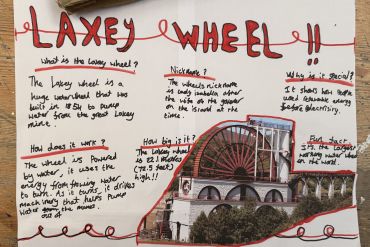 LAXEY WHEEL !!
What is the Laxey wheel?
The Laxey wheel is a
huge waterwheel that was
built in 1854 to pump
water from the great Laxey
mine.
How does it work?
The wheel is Powered
by water, it uses the
energy from flowing water
to turn. As it turns, it drives
machinery that helps Pump
Water the mines.
out of
Nickname?
The wheels nickname
is Lady Isabella, after
the wife of the governor
on the island at the
time.
How big is it?
The Laxey wheel
is 22.1 meters
(72.5 feet)
high!!
Why is it special?
It shows how People
used renewable energy
before electricity.
Fun fact
It's the largest
working water wheel
in the world.